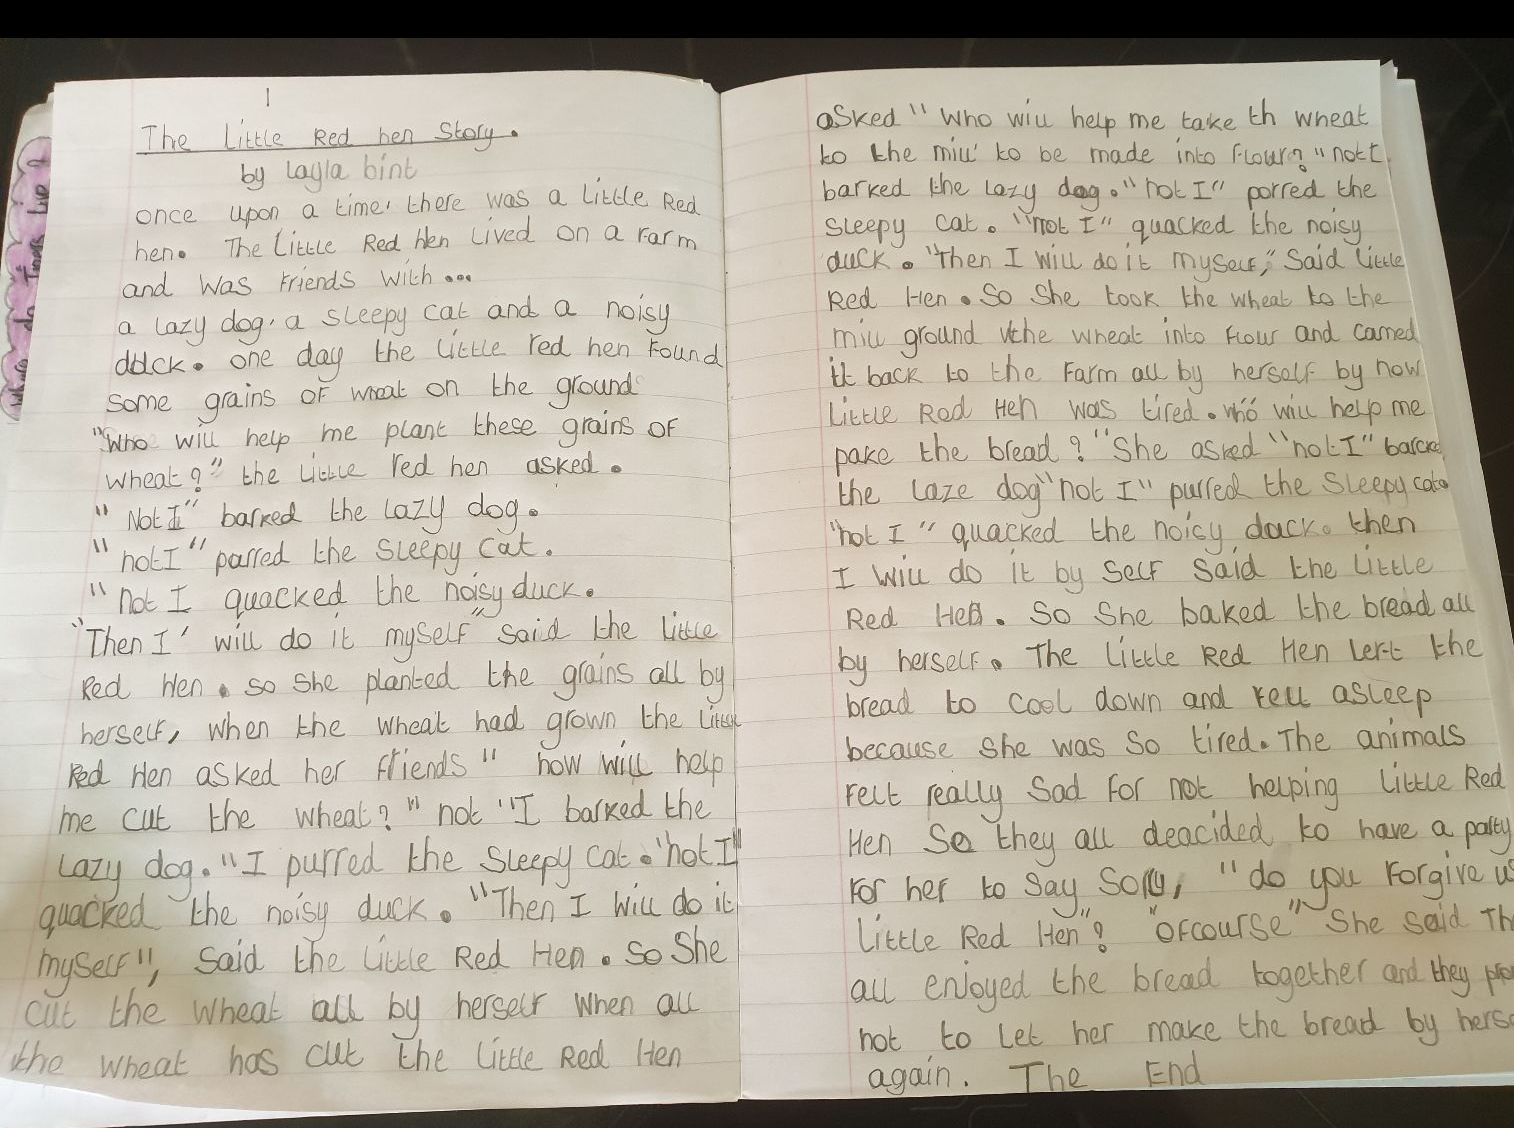 1
The Little Red hen Story.
by layla bint
once upon a time, there was a Little Red
hen. The Little Red Hen Lived on a Farm
and Was Friends With...
a lazy dog, a sleepy cat and a noisy
duck. one day the little red hen Found
some grains OF wheat on the ground
"Who will help me plant these grains OF
wheat?" the Little red hen asked.
" Not I" barked the Lazy dog.
"not I" parred the sleepy cat.
"not I quacked the noisy duck.
"Then I' will do it myself" said the little
Red Hen. so she planted the grains all by
herself, when the wheat had grown the little
Red Hen asked her friends " how will help
me cut the wheat?" not "I barked the
Lazy dog. "I purred the Sleepy cat. "not I"
quacked the noisy duck. "Then I Will do it
myself", Said the little Red Hen. So She
cut the wheat all by herself When all
the wheat has cut the little Red Hen
asked " Who will help me take th wheat
to the mill to be made into Flour? "not I
barked the Lazy dog. "not I" porred the
Sleepy cat. "not I" quacked the noisy
duck. "Then I Will do it myself," Said little
Red Hen. So She took the wheat to the
mill ground the wheat into Flour and carried
it back to the Farm all by herself by now
Little Red Hen was tired. who will help me
pake the bread? "She asked "not I" barcked
the Laze dog "not I" purred the Sleepy cat.
"not I" quacked the noisy duck. then
I Will do it by Self Said the Little
Red Hen. So She baked the bread all
by herself. The Little Red Hen left the
bread to cool down and Fell asleep
because She was So tired. The animals
Felt really Sad For not helping Little Red
Hen So they all deacided to have a party
For her to Say Sorry, "do you Forgive us
Little Red Hen"? "OFcourse" She Said Th
all enjoyed the bread together and they pro
not to Let her make the bread by herse
again. The End